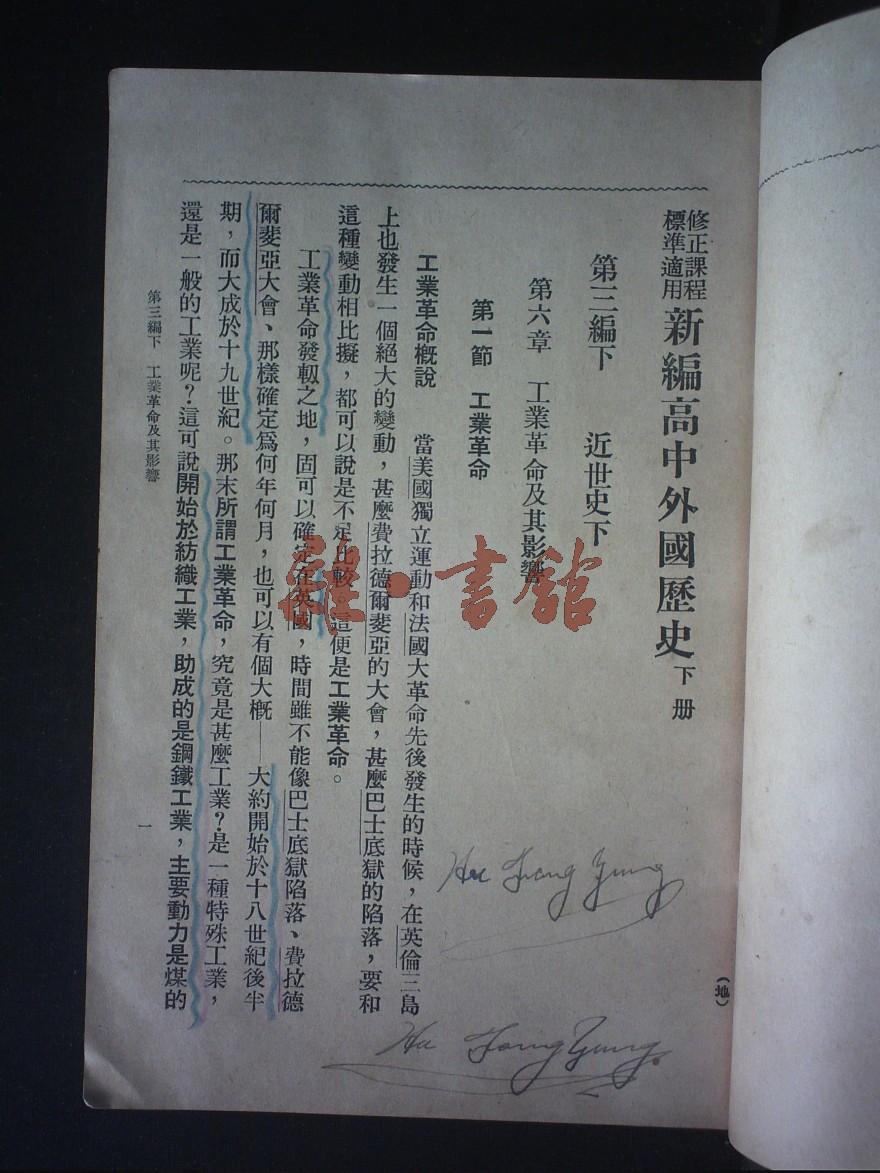 修正課程
標準適用
新編高中外國歷史 下册
第三編下　近世史下
第六章　工業革命及其影響
第一節　工業革命
工業革命概說　當美國獨立運動和法國大革命先後發生的時候，在英倫三島
上也發生一個絕大的變動，甚麼費拉德爾斐亞的大會，甚麼巴士底獄的陷落，要和
這種變動相比擬，都可以說是不足比較。這便是工業革命。
工業革命發軔之地，固可以確定在英國，時間雖不能像巴士底獄陷落、費拉德
爾斐亞大會、那樣確定爲何年何月，也可以有個大概——大約開始於十八世紀後半
期，而大成於十九世紀。那末所謂工業革命，究竟是甚麼工業？是一種特殊工業，
還是一般的工業呢？這可說開始於紡織工業，助成的是鋼鐵工業，主要動力是煤的
第三編下　工業革命及其影響
一
（地）
Hu
Hu
雜·書館